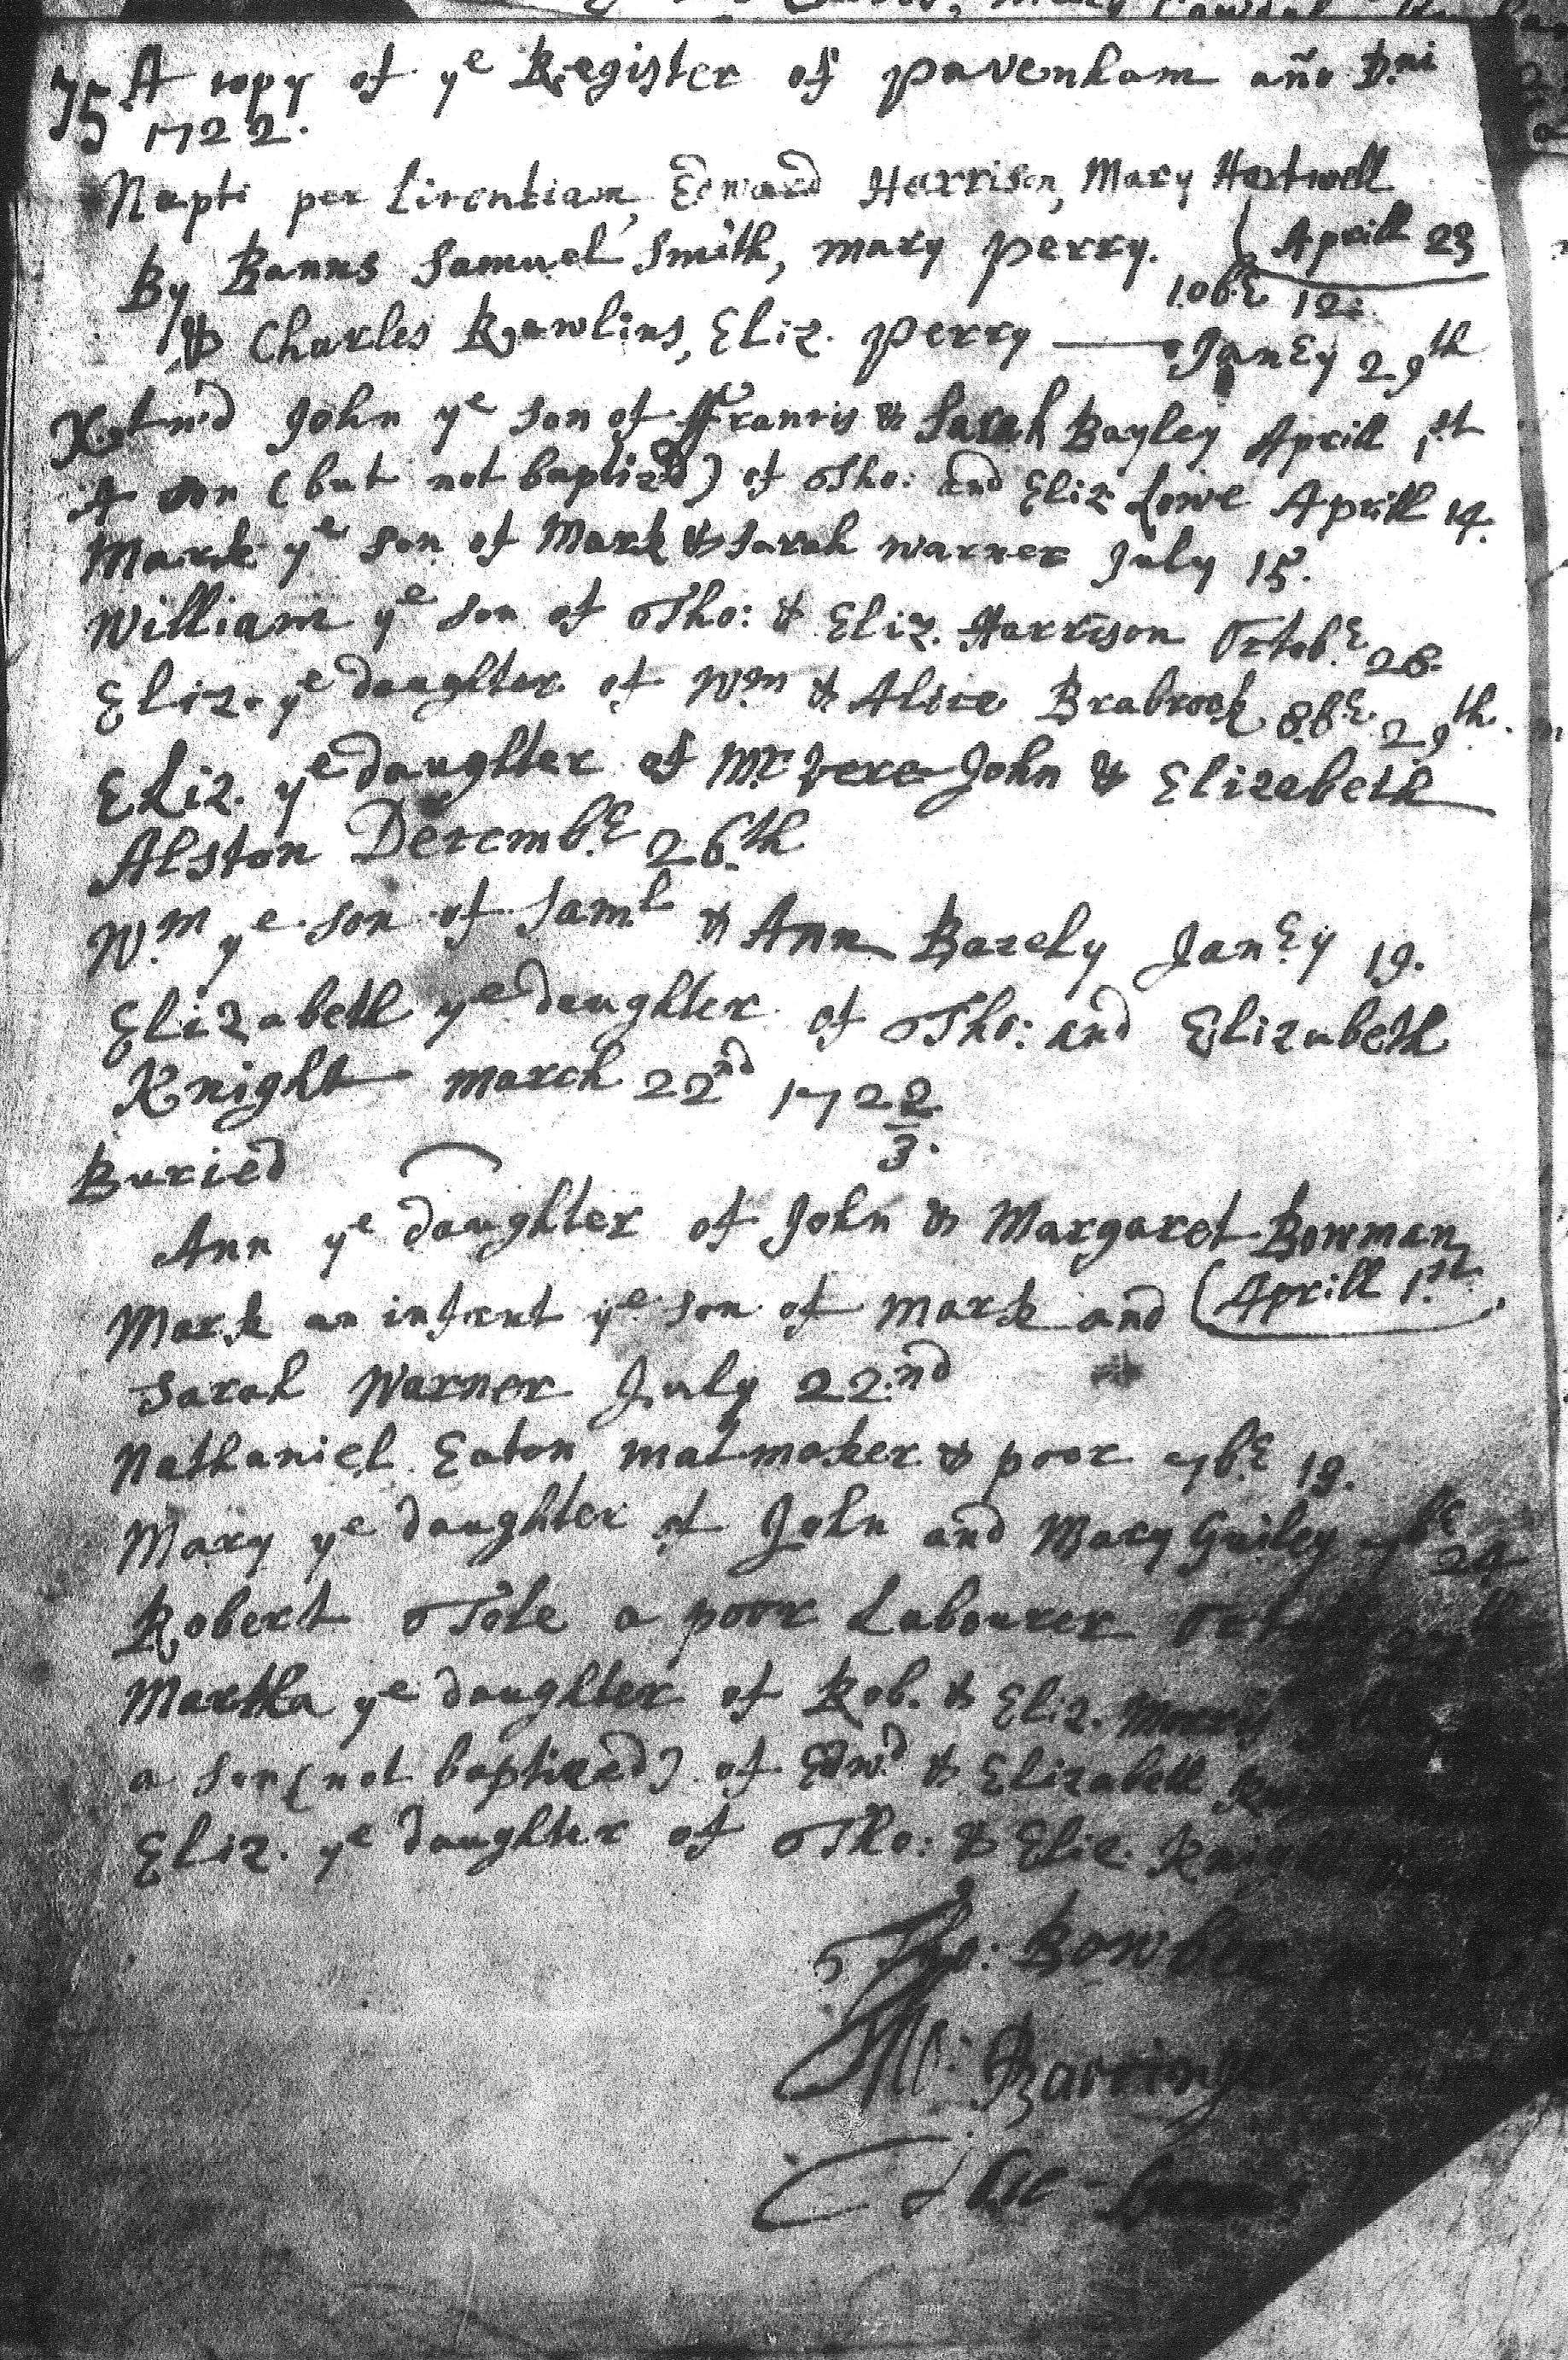 75 A copy of ye Register of Pavenham año Dni
1722.
Nupti per Licentiam, Edward Harrison, Mary Hartwell
Aprill 23
By Banns Samuel Smith, mary Perry. 10br 12:
& Charles Rawlins, Eliz. Perry — Janry 29th
Xstn'd John ye son of ffrancis & Sarah Bayley Aprill 1st
A son (but not baptiz'd) of Tho: and Eliz Lowe Aprill 14.
Mark ye son of Mark & Sarah Warner July 15.
William ye son of Tho: & Eliz. Harrison Octobr 28.
Eliz. ye daughter of Wm & Alice Brabrook 8br 29th.
Eliz. ye daughter of Mr Vere John & Elizabeth
Alston Decembr 26th
Wm ye son of Saml & Ann Bazely Janry 19.
Elizabeth ye daughter of Tho: and Elizabeth
Knight march 22nd 1722/3.
Buried
Ann ye daughter of John & Margaret Bowman
Aprill 1st.
Mark an infant ye son of Mark and
Sarah Warner July 22nd
Nathaniel Eaton matmaker & poor 7br 19.
Mary ye daughter of John and Mary 7br 24
Robert Tole a poor Labourer
Martha ye daughter of Rob. & Eliz.
a son (not baptized) of Edwd & Elizabeth
Eliz. ye daughter of Tho: & Eliz. Knight
Tho: